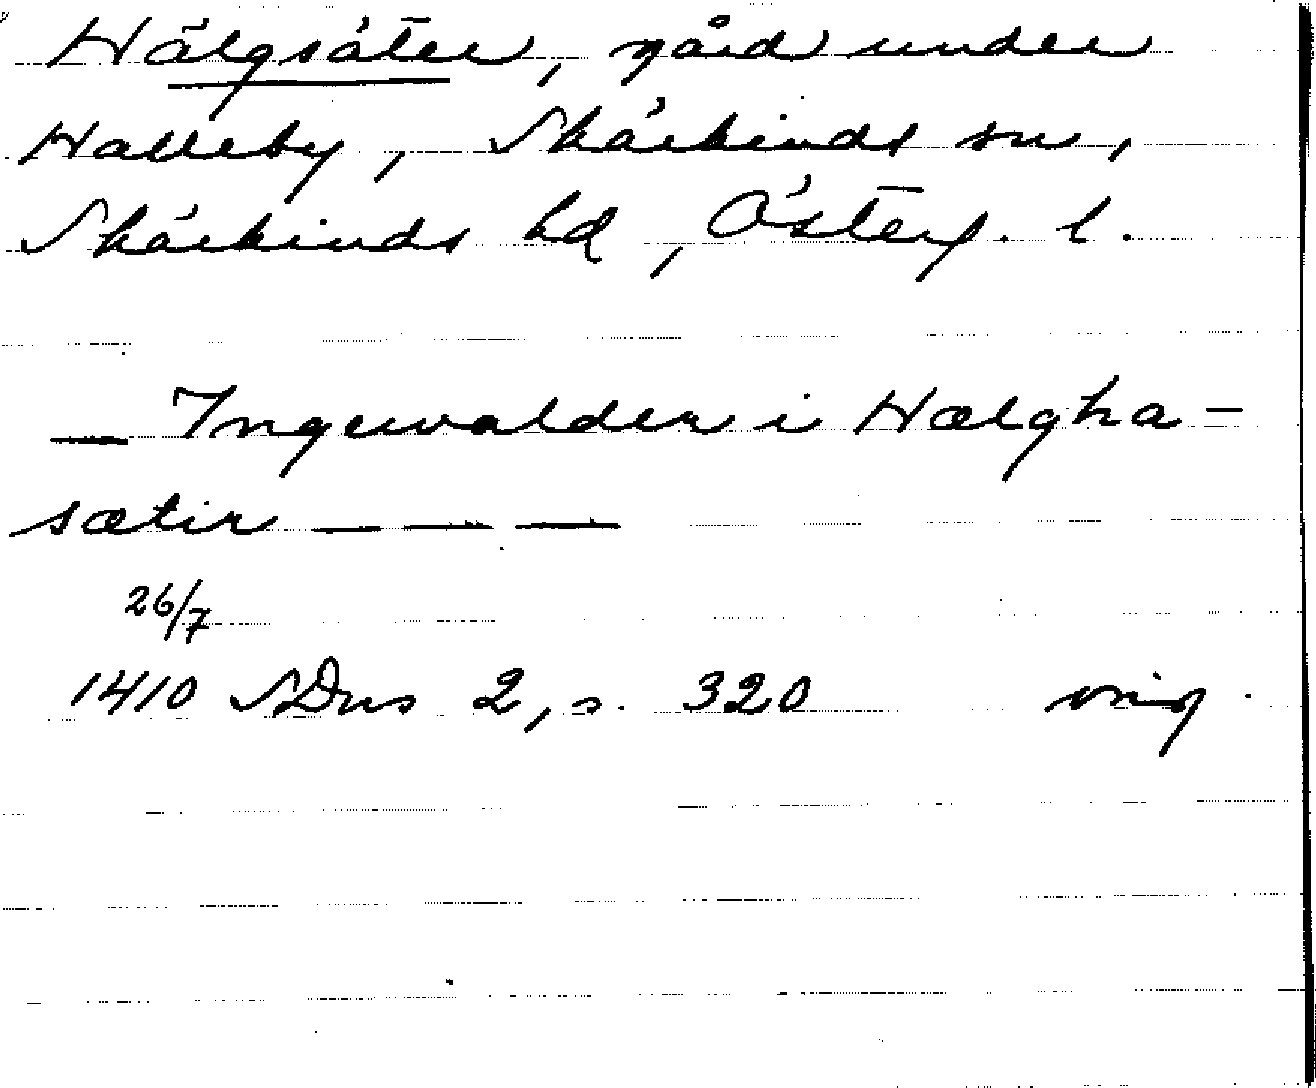 Hälgsäter, gård under
Halleby, Skärkinds sn,
Skärkinds hd, Österg. l.
— Ingewalder i Hælgha-
sætir — — —
26/7
1410 SDns 2, s. 320 orig.